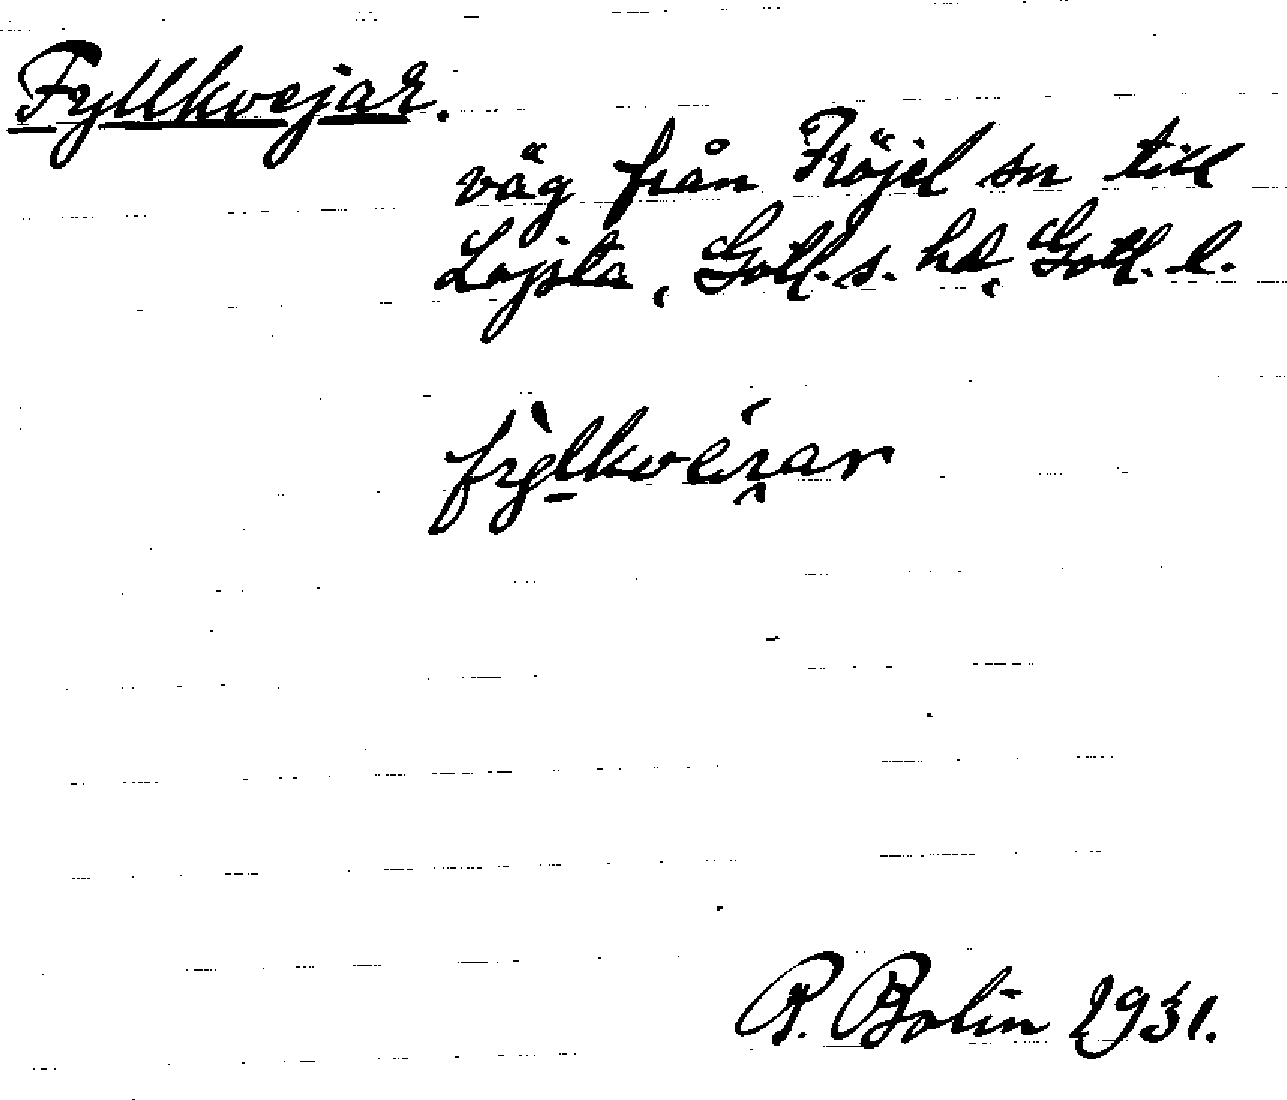 Fyllkvejar.
väg från Fröjel sn till
Lojsta, Gotl. s. hd, Gotl. l.
R. Bolin 1931.